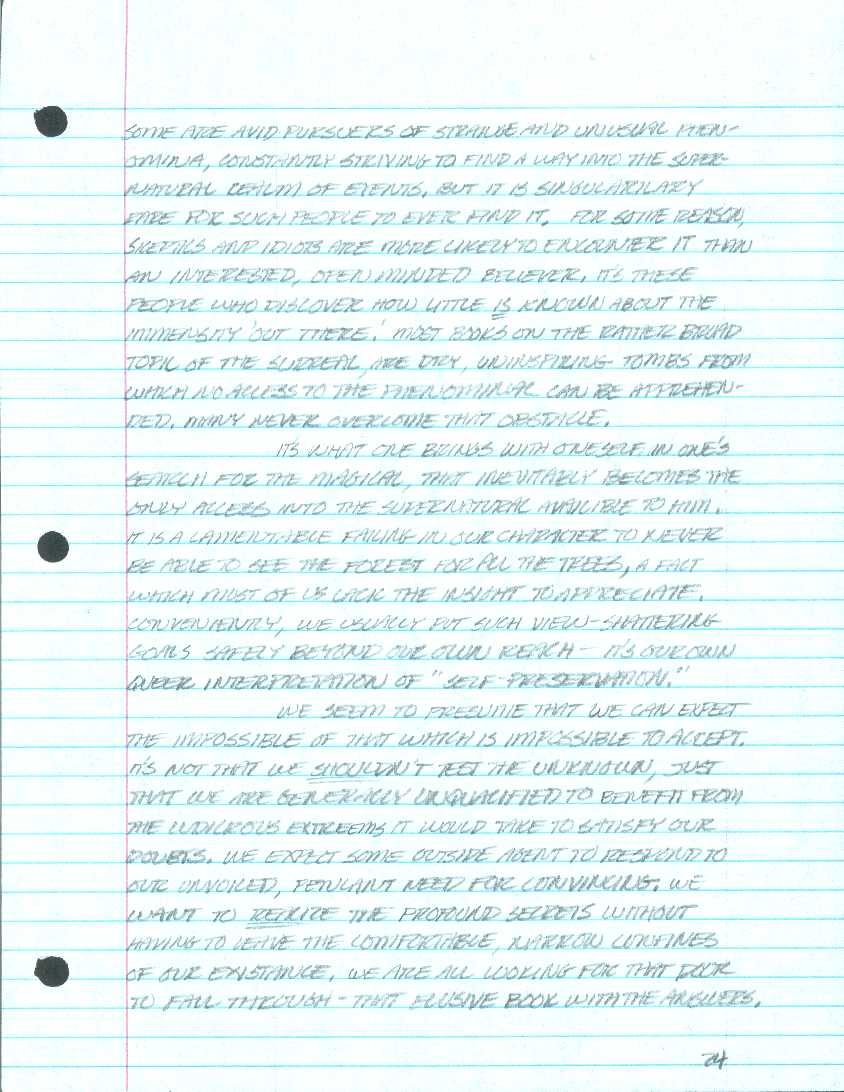 SOME ARE AVID PURSUERS OF STRANGE AND UNUSUAL PHEN-
OMINA, CONSTANTLY STRIVING TO FIND A WAY INTO THE SUPER-
NATURAL REALM OF EVENTS. BUT IT IS SINGULARILARY
RARE FOR SUCH PEOPLE TO EVER FIND IT. FOR SOME REASON,
SKEPTICS AND IDIOTS ARE MORE LIKELY TO ENCOUNTER IT THAN
AN INTERESTED, OPEN MINDED BELIEVER. IT'S THESE
PEOPLE WHO DISCOVER HOW LITTLE IS KNOWN ABOUT THE
IMMENSITY 'OUT THERE.' MOST BOOKS ON THE RATHER BROAD
TOPIC OF THE SURREAL, ARE DRY, UNINSPIRING TOMBS FROM
WHICH NO ACCESS TO THE PHENOMINAL CAN BE APPREHEN-
DED. MANY NEVER OVERCOME THAT OBSTACLE.
IT'S WHAT ONE BRINGS WITH ONESELF IN ONE'S
SEARCH FOR THE MAGICAL, THAT INEVITABLY BECOMES THE
ONLY ACCESS INTO THE SUPERNATURAL AVAILIBLE TO HIM.
IT IS A LAMENTABLE FAILING IN OUR CHARACTER TO NEVER
BE ABLE TO SEE THE FOREST FOR ALL THE TREES, A FACT
WHICH MOST OF US LACK THE INSIGHT TO APPRECIATE.
CONVENIENTLY, WE USUALLY PUT SUCH VIEW-SHATTERING
GOALS SAFELY BEYOND OUR OWN REACH - IT'S OUR OWN
QUEER INTERPRETATION OF "SELF-PRESERVATION."
WE SEEM TO PRESUME THAT WE CAN EXPECT
THE IMPOSSIBLE OF THAT WHICH IS IMPOSSIBLE TO ACCEPT.
IT'S NOT THAT WE SHOULDN'T TEST THE UNKNOWN, JUST
THAT WE ARE GENERALLY UNQUALIFIED TO BENEFIT FROM
THE LUDICROUS EXTREEMS IT WOULD TAKE TO SATISFY OUR
DOUBTS. WE EXPECT SOME OUTSIDE AGENT TO RESPOND TO
OUR UNVOICED, PETULANT NEED FOR CONVINCING. WE
WANT TO RECEIVE THE PROFOUND SECRETS WITHOUT
HAVING TO LEAVE THE COMFORTABLE, NARROW CONFINES
OF OUR EXISTANCE. WE ARE ALL LOOKING FOR THAT DOOR
TO FALL THROUGH - THAT ELUSIVE BOOK WITH THE ANSWERS.
24